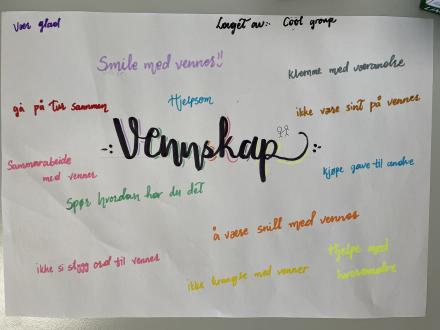 Vær glad
Laget av:- Cool group
Smile med venner!!
Klemme med værandre
gå på tur sammen
Hjelpsom
ikke være sint på venner
Vennskap
Sammarabeide
med venner
kjøpe gave til andre
Spør hvordan har du det
å være snill med venner
Hjelpe med
hverandre
ikke si stygg ord til venner
ikke krangle med venner